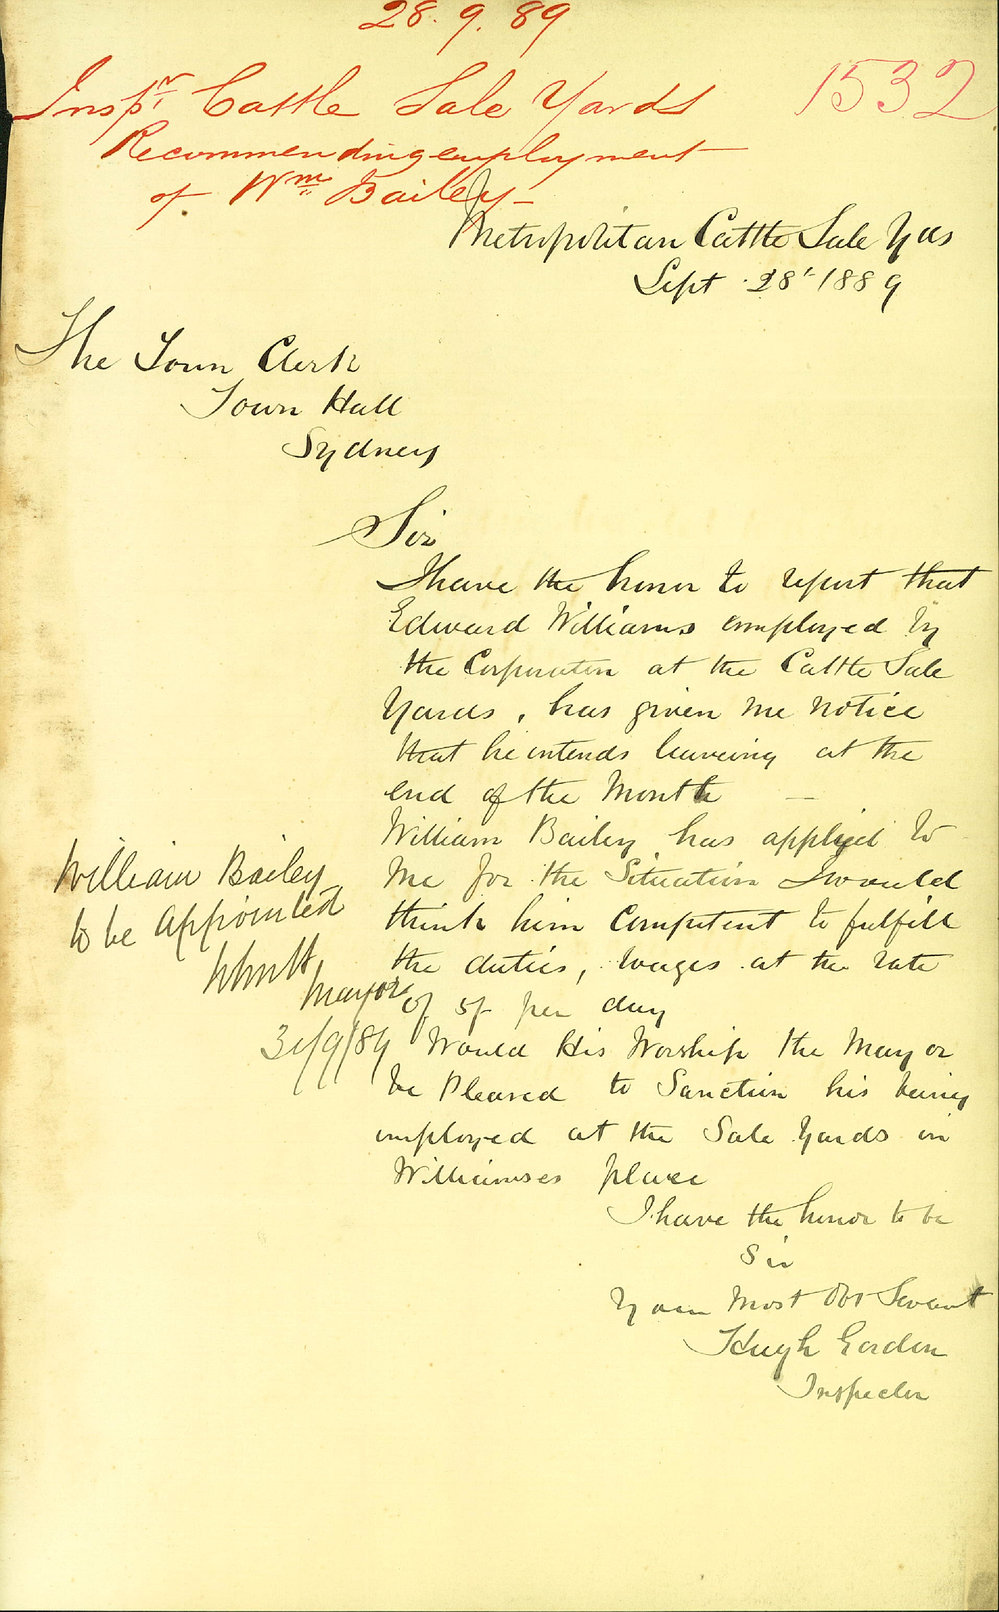 28.9.89
1532
Inspr Cattle Sale Yards
Recommending employment
of Wm Bailey –
Metropolitan Cattle Sale Yds
Sept 28' 1889
The Town Clerk
Town Hall
Sydney
Sir
I have the honor to report that
Edward Williams employed by
the Corporation at the Cattle Sale
Yards, has given me notice
that he intends leaveing at the
end of the Month –
William Bailey has applied to
Me for the Situation I would
think him Competent to fulfill
the duties, wages at the rate
of 5/ per day
Would His Worship the Mayor
be Pleased to Sanction his being
employed at the Sale Yards in
Williamses place
I have the honor to be
Sir
Your Most Obt Servant
Hugh Gordon
Inspector
William Bailey
to be appointed
Mayor
30/9/89